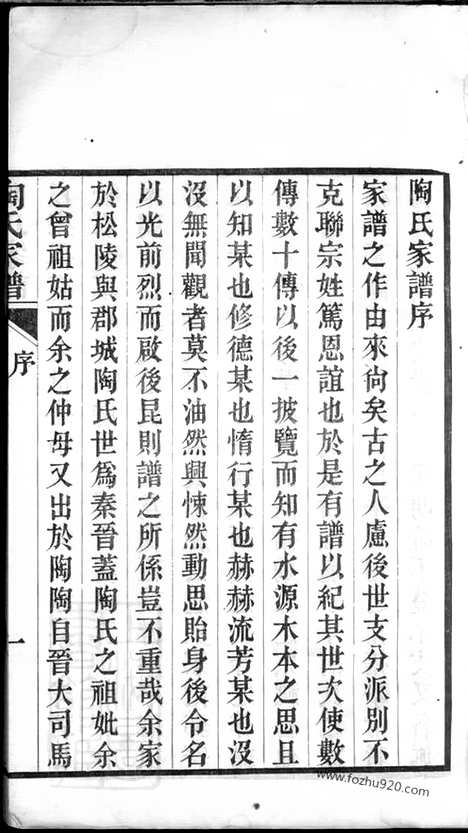 陶氏家譜序
家譜之作由來尙矣古之人慮後世支分派別不
克聯宗姓篤恩誼也於是有譜以紀其世次使數
傳數十傳以後一披覽而知有水源木本之思且
以知某也修德某也惰行某也赫赫流芳某也沒
沒無聞觀者莫不油然興悚然動思貽身後令名
以光前烈而啟後昆則譜之所係豈不重哉余家
於松陵與郡城陶氏世爲秦晉蓋陶氏之祖妣余
之曾祖姑而余之仲母又出於陶陶自晉大司馬
陶氏家譜
序
一
www.fozhu920.com